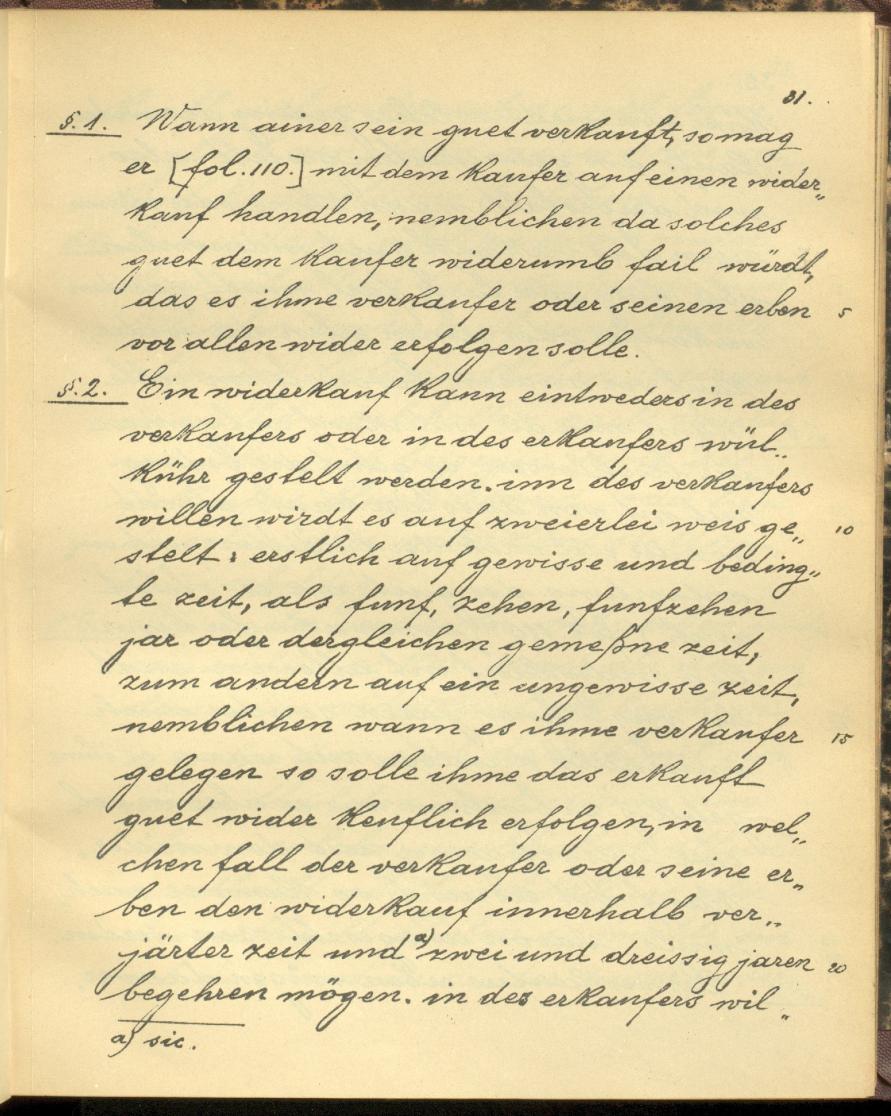 31.
§.1. Wann ainer sein guet verkauft, so mag
er [fol.110.] mit dem kaufer auf einen wider„
kauf handlen, nemblichen da solches
guet dem kaufer widerumb fail würdt,
das es ihme verkaufer oder seinen erben 5
vor allen wider erfolgen solle.
§.2. Ein widerkauf kann eintweders in des
verkaufers oder in des erkaufers wül„
kühr gestelt werden. inn des verkaufers
willen wirdt es auf zweierlei weis ge„ 10
stelt: erstlich auf gewisse und beding„
te zeit, als funf, zehen, funfzehen
jar oder dergleichen gemeßne zeit,
zum andern auf ein ungewisse zeit,
nemblichen wann es ihme verkaufer 15
gelegen so solle ihme das erkauft
guet wider keuflich erfolgen, in wel„
chen fall der verkaufer oder seine er„
ben den widerkauf innerhalb ver„
järter zeit und a) zwei und dreissig jaren 20
begehren mögen. in des erkaufers wil„
a) sic.